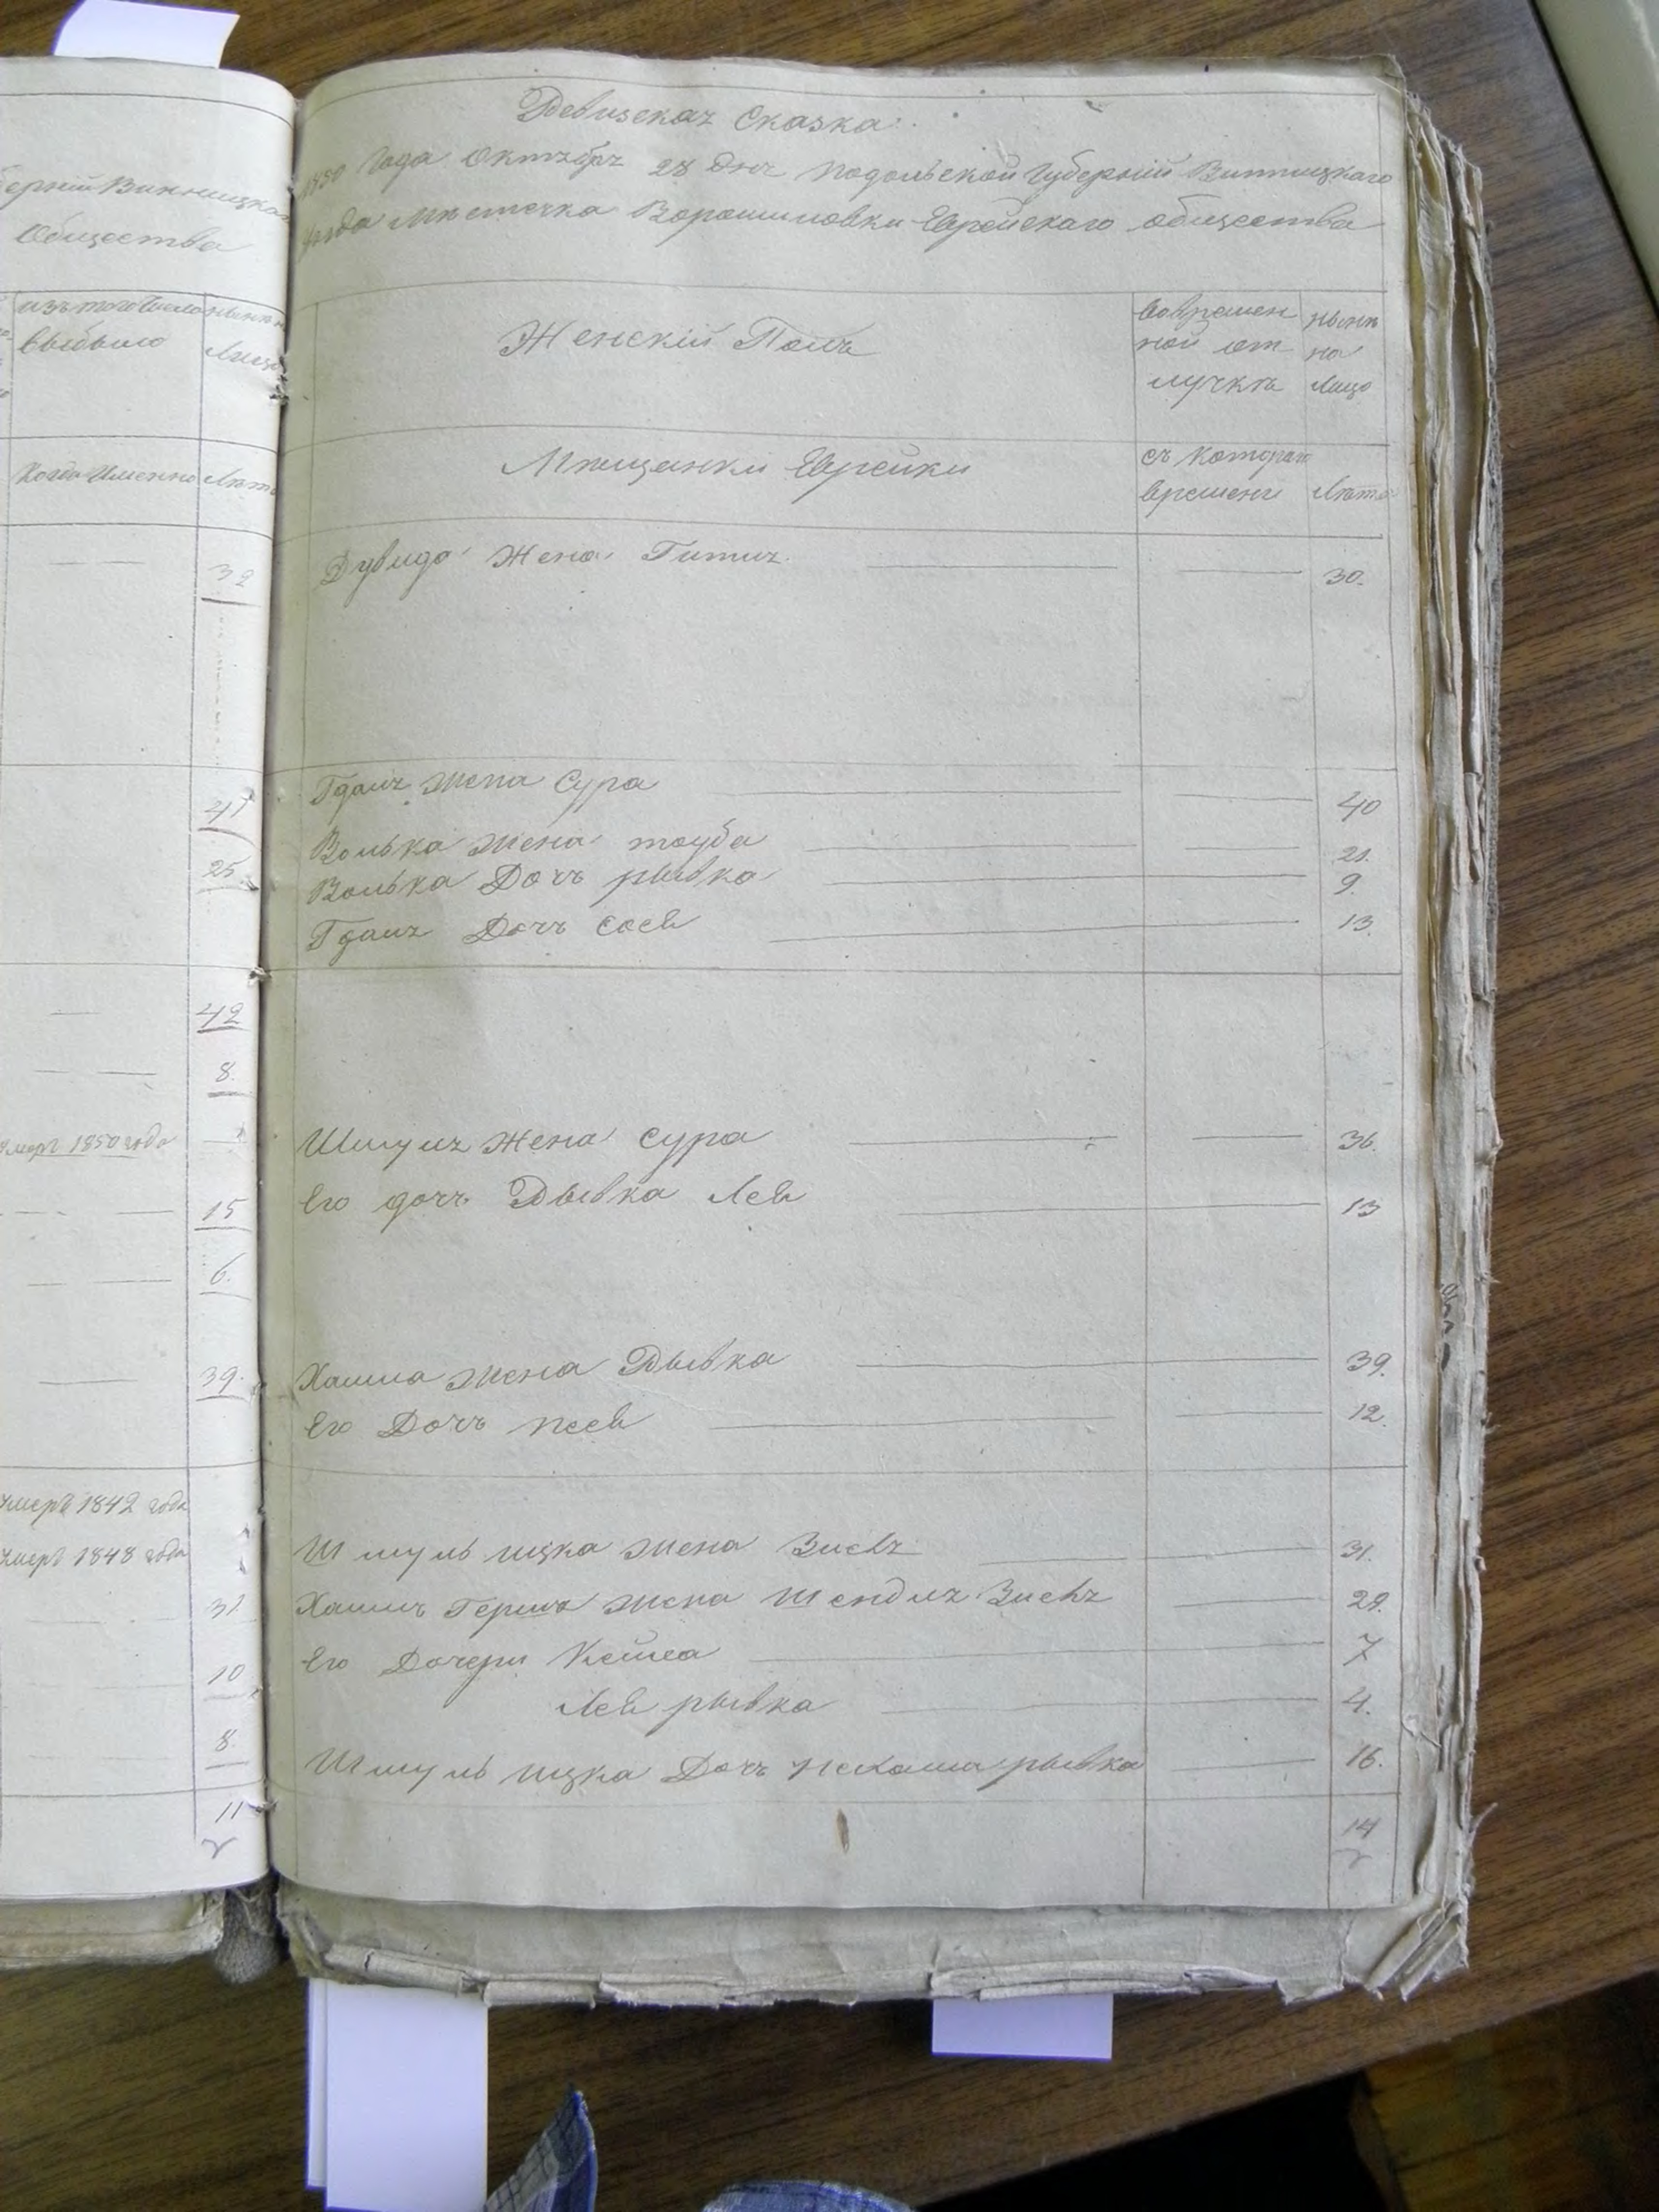 ерніи Винницка
Общества
изъ того числа
выбыло
нынѣ н
Лицо
Когда Именно
Лѣта
32
41
25
42
8
умеръ 1850 года
15
6.
39.
умеръ 1842 года
умеръ 1848 года
31
10
8.
11
Ревизская Сказка
1850 Года Октября 28 дня Подольской Губерніи Винницкаго
уѣзда Мѣстечка Ворошиловки Еврейскаго общества
Женскій Полъ
во времен
ной от
лучкѣ
нынѣ
на
Лицо
Мѣщанки Еврейки
съ котораго
времени
Лѣта
Дувида Жена Гитля 30.
Гдаля жена Сура 40
Волька жена тауба 21.
Волька Дочъ рывка 9.
Гдаля Дочъ Сося 13.
Шмуля Жена Сура 36.
Его дочъ Рывка Лея 13
Хаима жена Рывка 39.
Его Дочъ Пея 12.
Шмуль ицка жена Зися 31.
Хаимъ Герша жена Шендля Зися 29.
Его Дочери Кейла 7
Лея рывка 4.
Шмуль ицка Дочъ Нехама рывка 16.
14